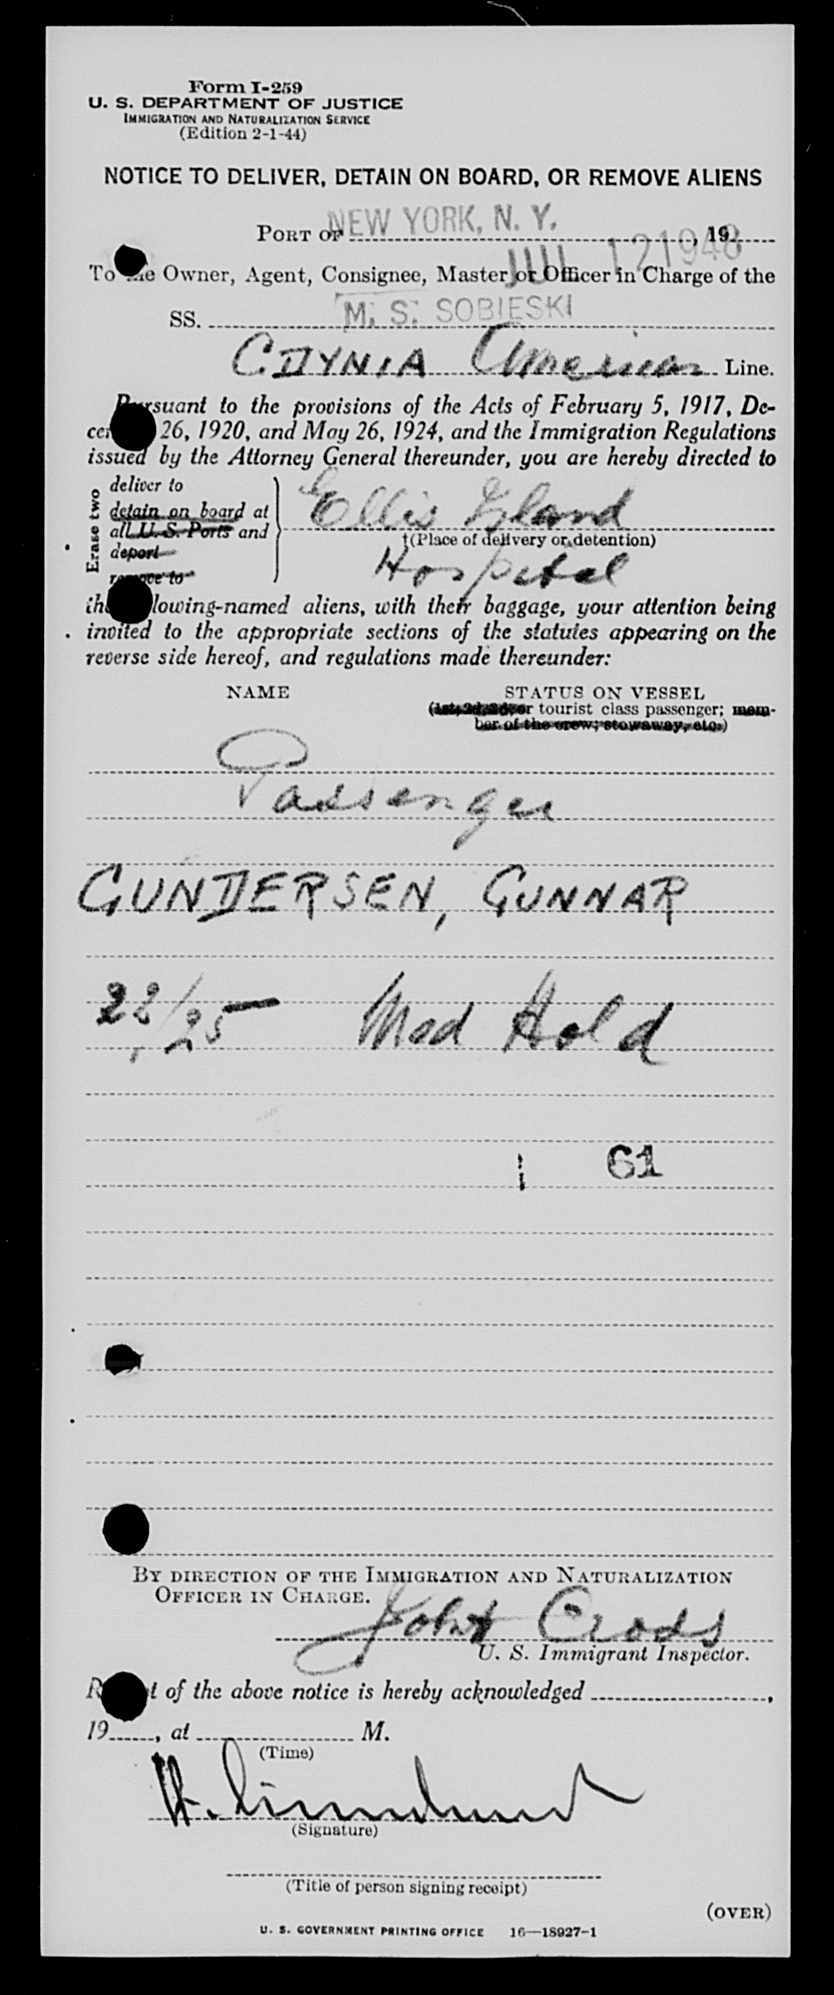 Form I-259
U. S. DEPARTMENT OF JUSTICE
IMMIGRATION AND NATURALIZATION SERVICE
(Edition 2-1-44)
NOTICE TO DELIVER, DETAIN ON BOARD, OR REMOVE ALIENS
PORT OF NEW YORK, N. Y. , 19
JUL 12 1948
To Owner, Agent, Consignee, Master or Officer in Charge of the
SS. M. S. SOBIESKI
GDYNIA American Line.
Pursuant to the provisions of the Acts of February 5, 1917, De-
26, 1920, and May 26, 1924, and the Immigration Regulations
issued by the Attorney General thereunder, you are hereby directed to
Erase two
deliver to
detain on board at
all U. S. Ports and
deport
remove to
Ellis Island
†(Place of delivery or detention)
Hospital
lowing-named aliens, with their baggage, your attention being
invited to the appropriate sections of the statutes appearing on the
reverse side hereof, and regulations made thereunder:
NAME STATUS ON VESSEL
(1st, 2d, 3d, or tourist class passenger; mem-
ber of the crew; stowaway, etc.)
Passenger
GUNDERSEN, GUNNAR
22/25 Med Hold
61
BY DIRECTION OF THE IMMIGRATION AND NATURALIZATION
OFFICER IN CHARGE.
John
U. S. Immigrant Inspector.
of the above notice is hereby acknowledged ,
19 , at M.
(Time)
(Signature)
(Title of person signing receipt)
(OVER)
U. S. GOVERNMENT PRINTING OFFICE 16—18927-1